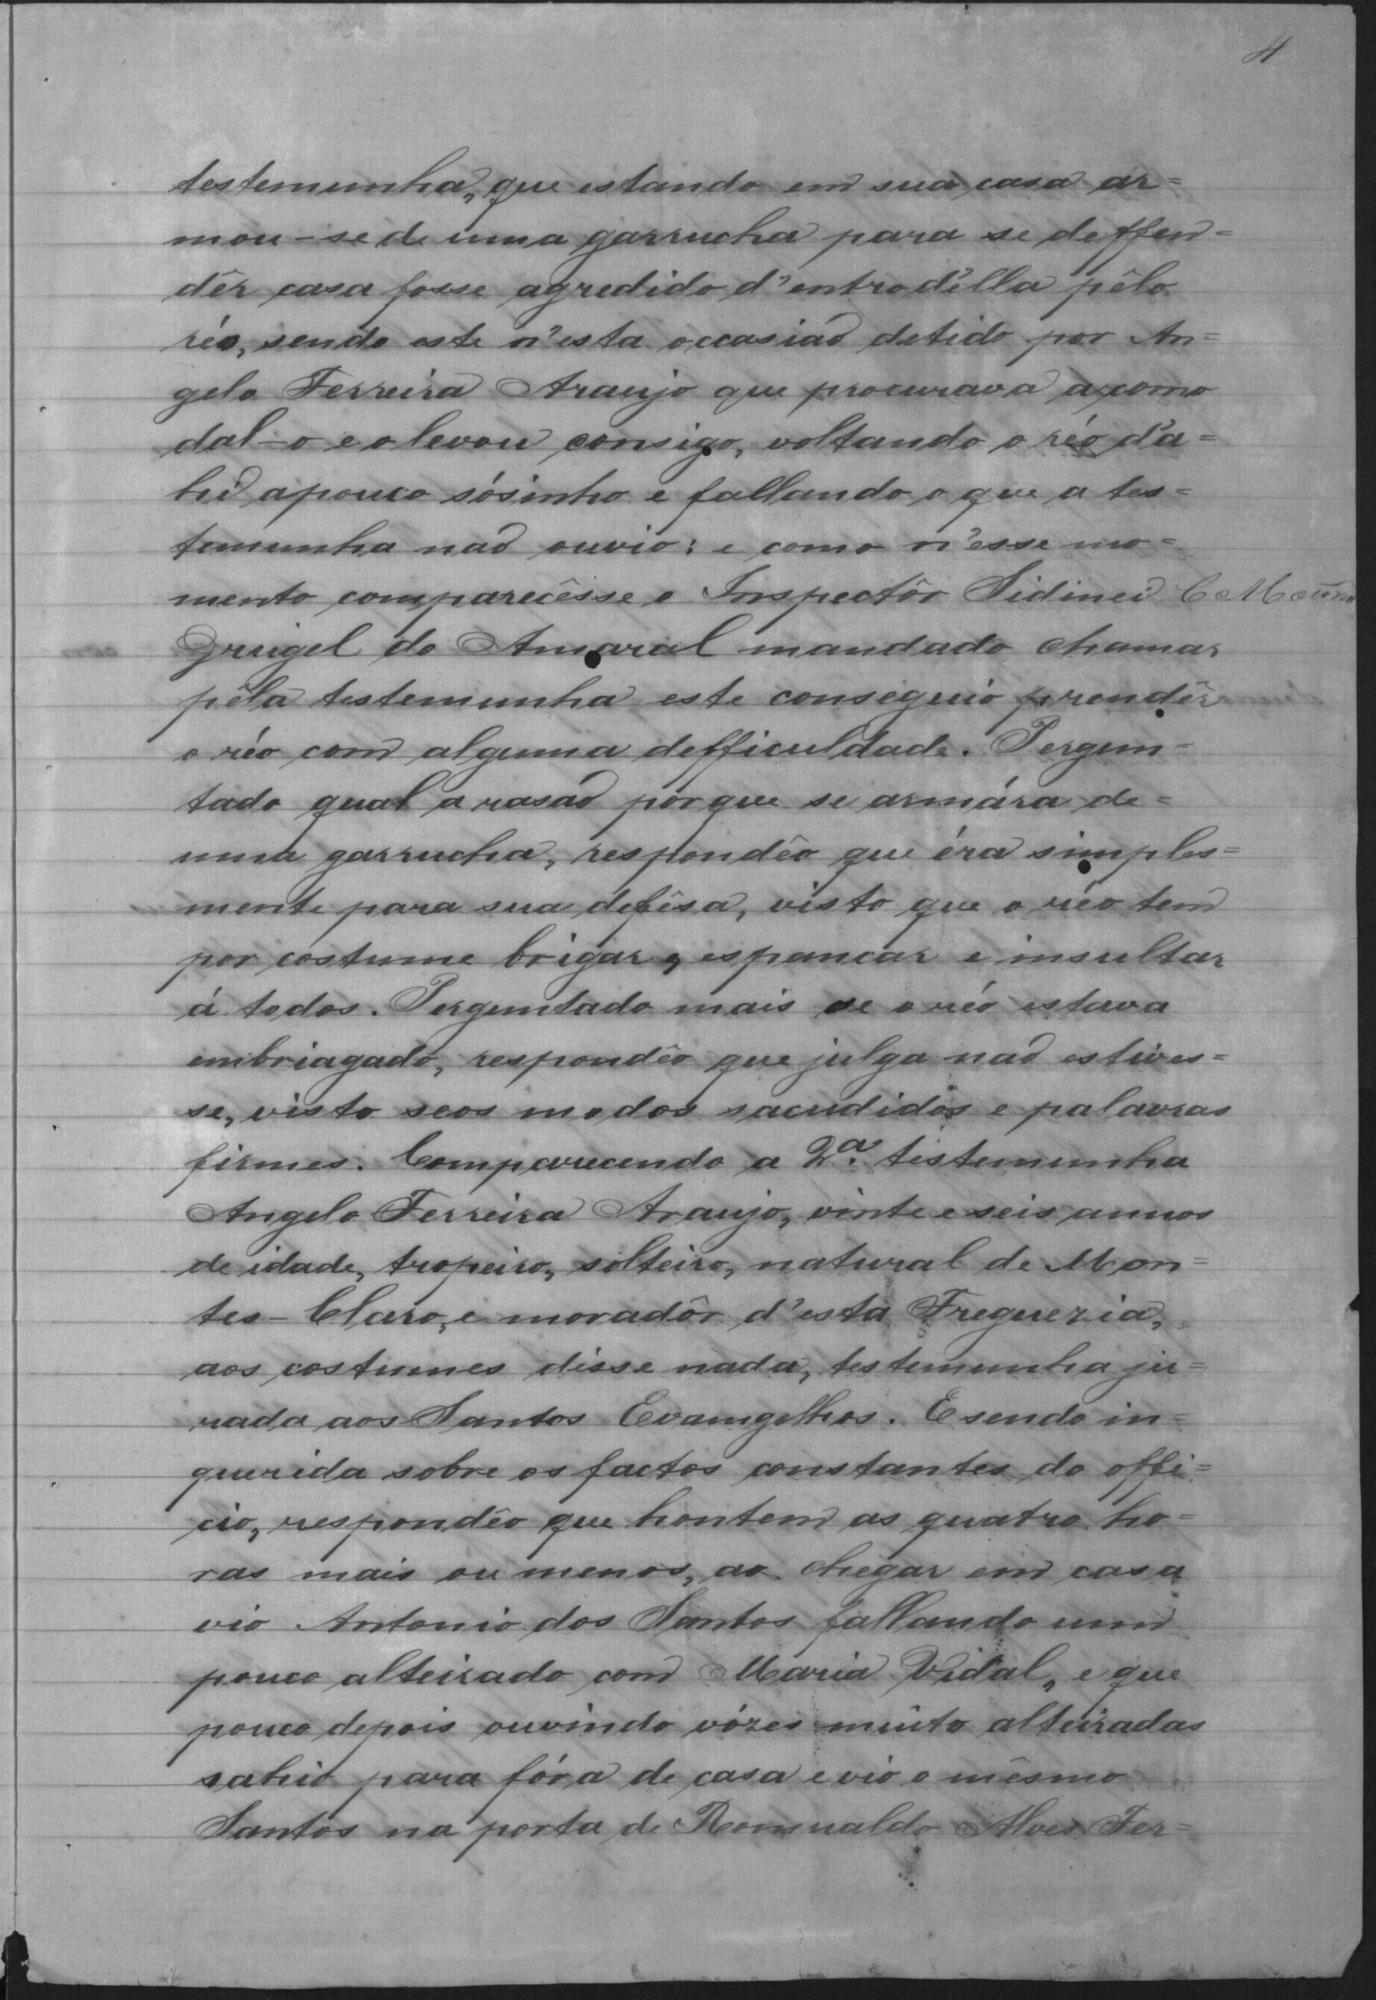 4
testemunha, que estando em sua casa ar=
mou-se de uma garrucha para se deffen=
dêr casa fosse agredido d'entro d'élla pêlo
réo, sendo este n'esta occasiaõ detido por An=
gelo Ferreira Araujo que procurava acomo
dal-o e o levou consigo, voltando o réo d'a=
hi apouco sósinho e fallando o que a tes=
temunha naõ ouvio; e como n'esse mo=
mento comparecêsse o Inspectôr Sidinei C
do Amaral mandado chamar
pêla testemunha este conseguio prendêr
o réo com alguma defficuldade. Pergun=
tado qual a rasaõ porque se armára de=
uma garrucha, respondêo que éra simples=
mente para sua defêsa, visto que o réo tem
por costume brigar, espancar e insultar
á todos. Perguntado mais se o réo estava
embriagado, respondêo que julga naõ estives=
se, visto seos modos sacudidos e palavras
firmes. Comparecendo a 2ª testemunha
Angelo Ferreira Araujo, vinte e seis annos
de idade, tropeiro, solteiro, natural de Mon=
tes-Claro, e moradôr d'esta Freguezia,
aos costumes disse nada, testemunha ju=
rada aos Santos Evangelhos. E sendo in=
querida sobre os factos constantes do offi=
cio, respondêo que hontem as quatro ho=
ras mais ou menos, ao chegar em casa
vio Antonio dos Santos fallando um
pouco alteirado com Maria Vidal, e que
pouco depois ouvindo vózes muito alteiradas
sahio para fóra de casa e vio o mêsmo
Santos na porta de Romualdo Alves Fer=